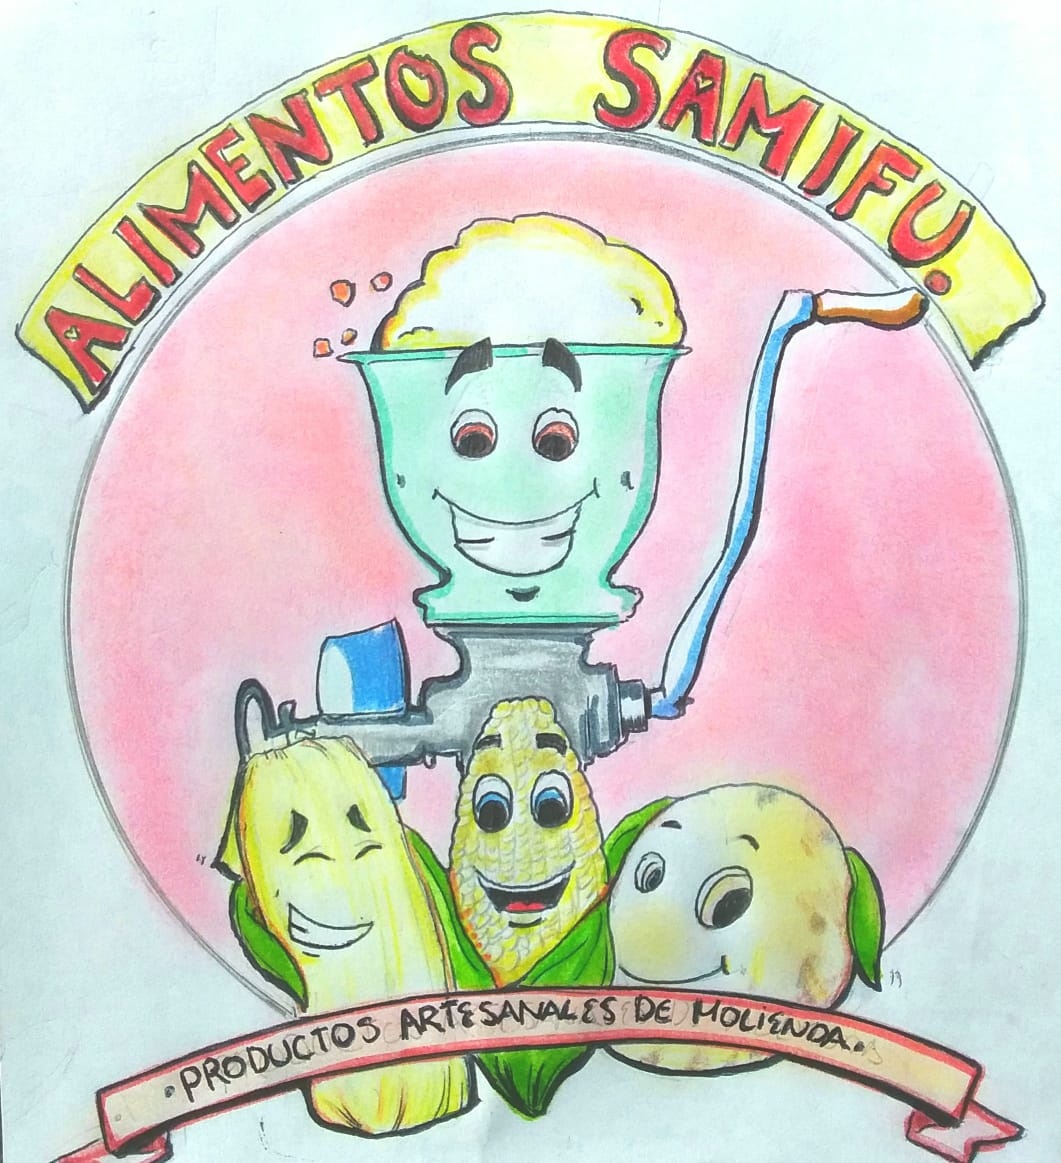 ALIMENTOS SAMIFU.
.PRODUCTOS ARTESANALES DE MOLIENDA.